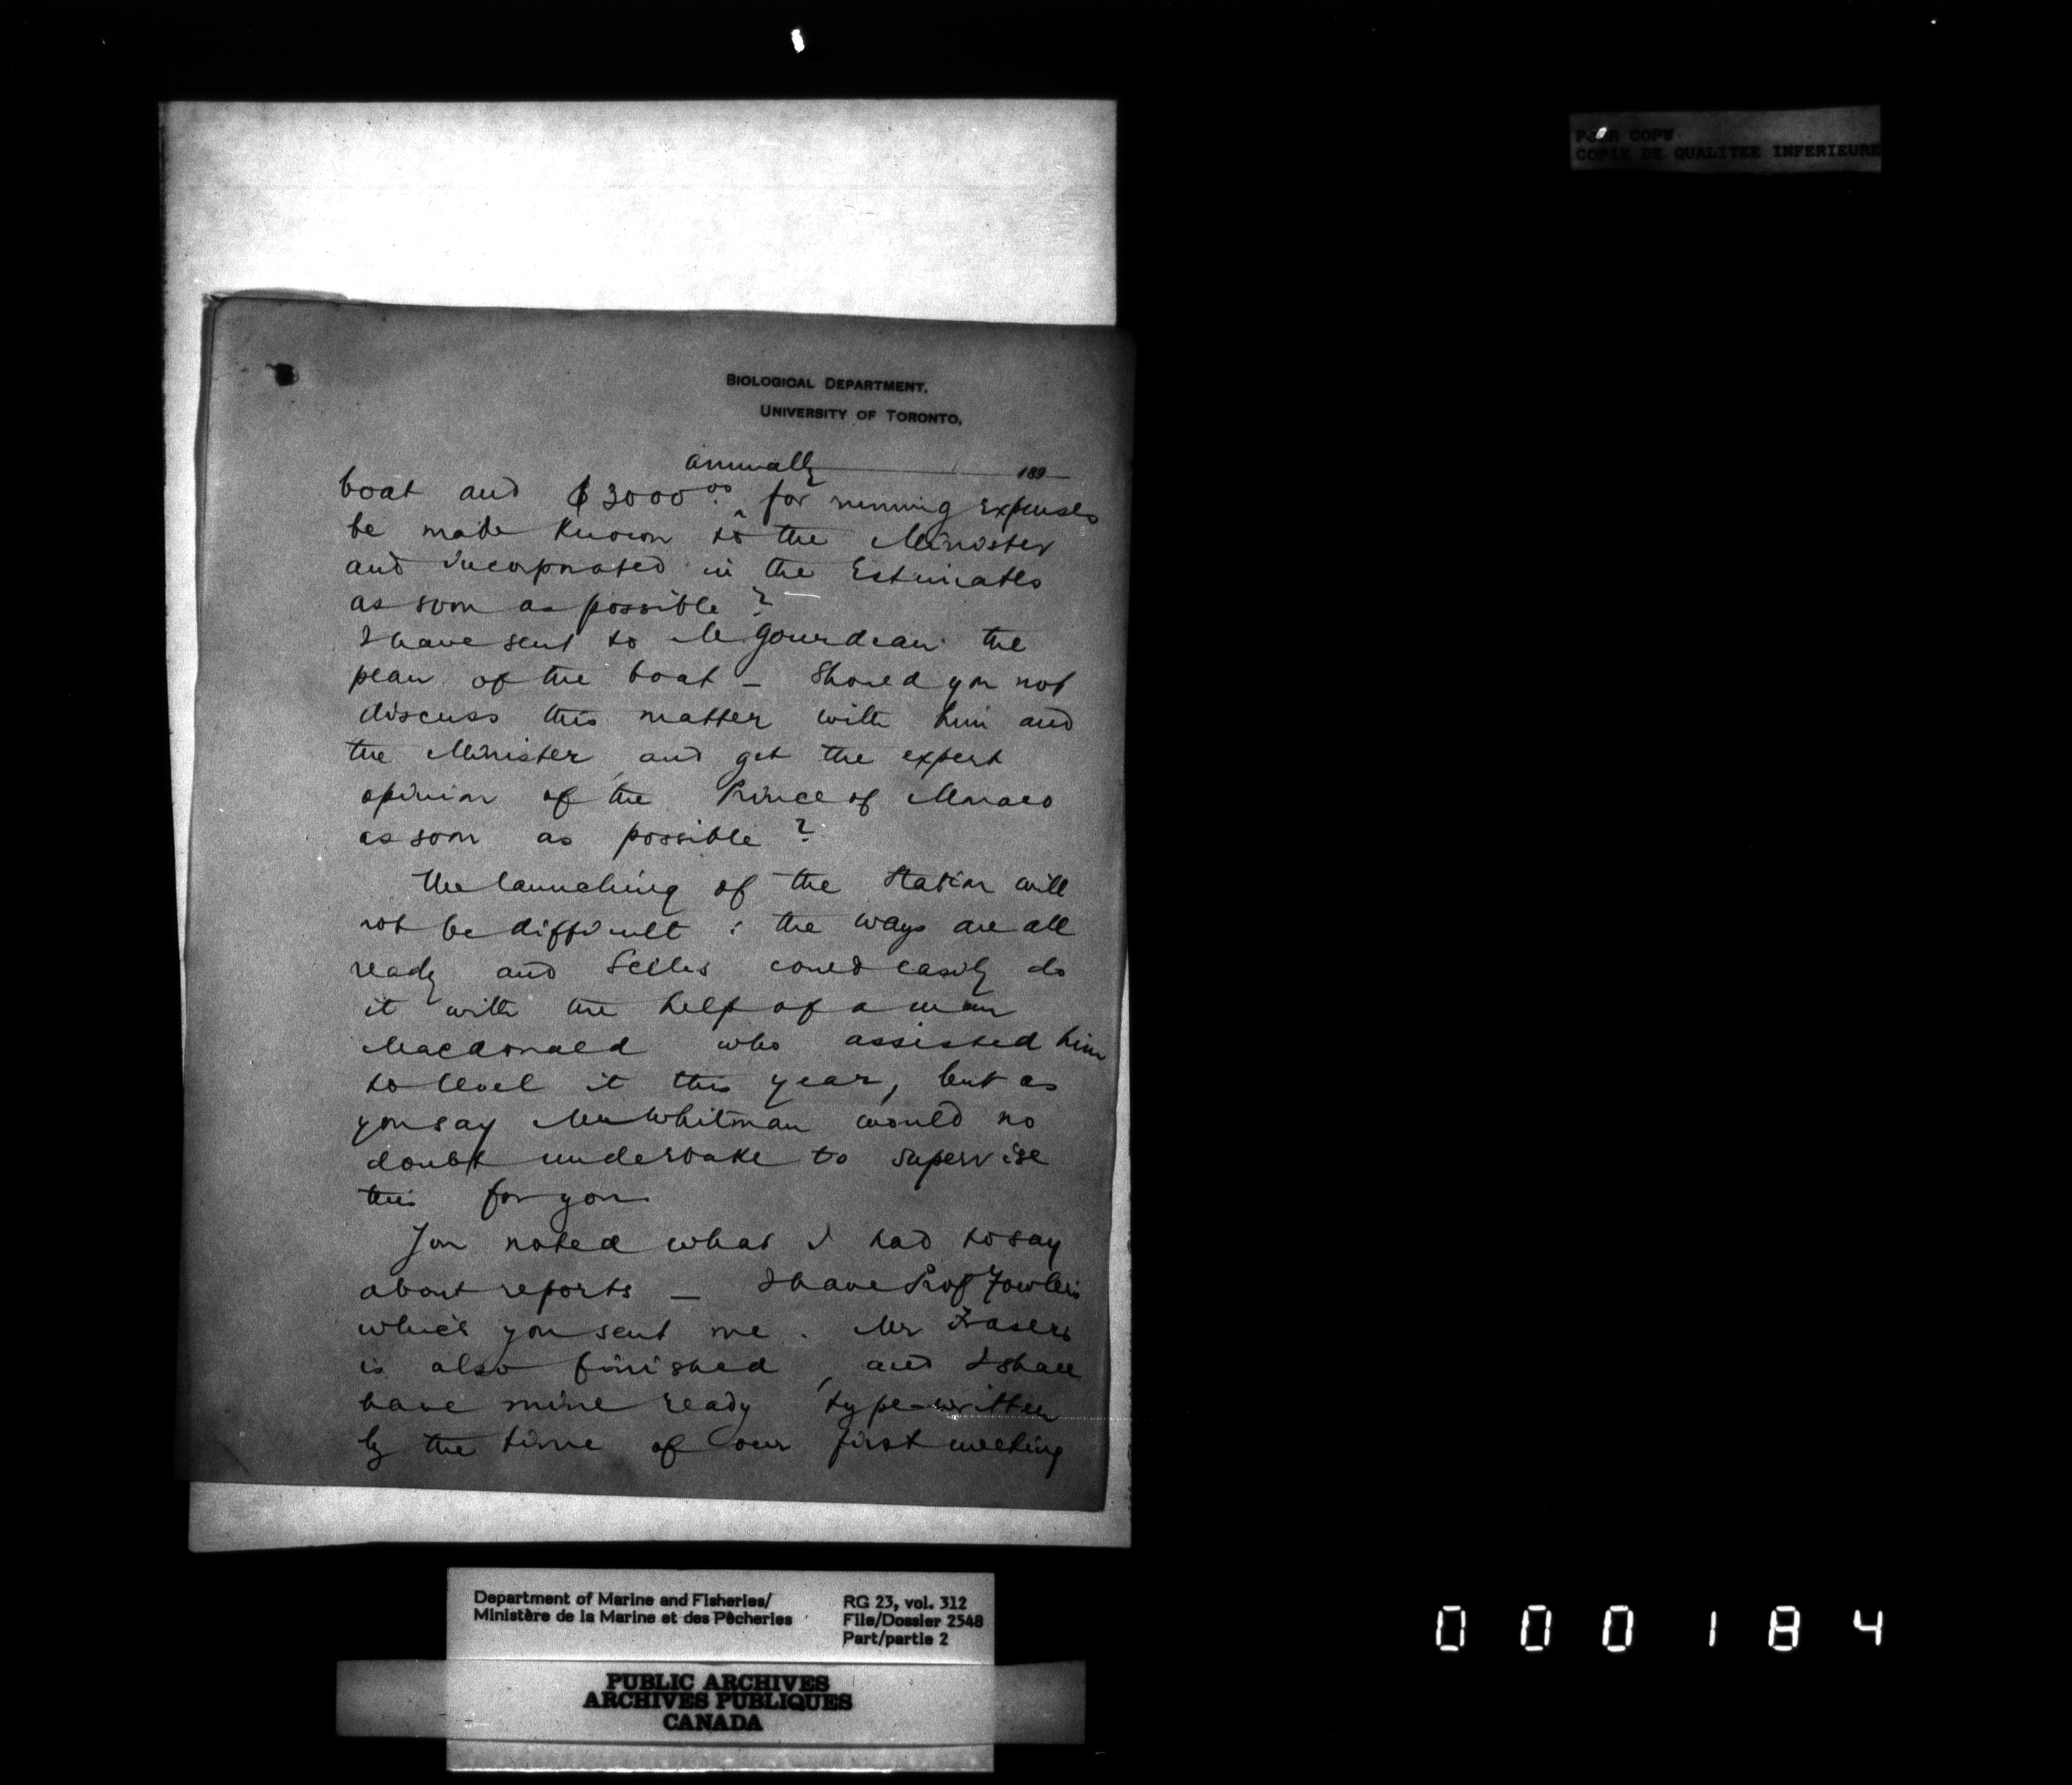 POOR COPY
COPIE DE QUALITEE INFERIEURE
BIOLOGICAL DEPARTMENT,
UNIVERSITY OF TORONTO,
annually 189
boat and $3000.00 for running expenses
be made known to the Minister
and incorporated in the Estimates
as soon as possible?
I have sent to M Gourdeau the
plan of the boat – Should you not
discuss this matter with him and
the Minister, and get the expert
opinion of the Prince of Monaco
as soon as possible?
The launching of the Station will
not be difficult: the ways are all
ready and could easily do
it with the help of a man
Macdonald who assisted him
to level it this year, but as
you say Mr Whitman would no
doubt undertake to supervise
this for you
You noted what I had to say
about reports – I have Prof Fowler's
which you sent me. Mr Frasers
is also finished, and I shall
have mine ready type-written
by the time of our first meeting
Department of Marine and Fisheries/
Ministère de la Marine et des Pêcheries
RG 23, vol. 312
File/Dossier 2548
Part/partie 2
PUBLIC ARCHIVES
ARCHIVES PUBLIQUES
CANADA
000184